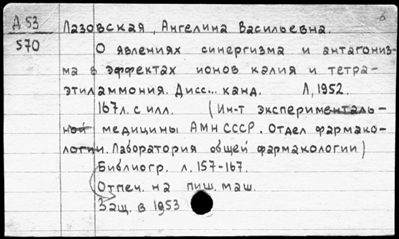 Д 53
570
Лазовская, Ангелина Васильевна.
О явлениях синергизма и антагониз-
ма в эффектах ионов калия и тетра-
этиламмония. Дисс... канд. Л, 1952.
167л. с илл. (Ин-т эксперименталь-
ной медицины АМН СССР. Отдел фармако-
логии. Лаборатория общей фармакологии)
Библиогр. л. 157-167.
Отпеч. на пиш. маш.
Защ. в 1953